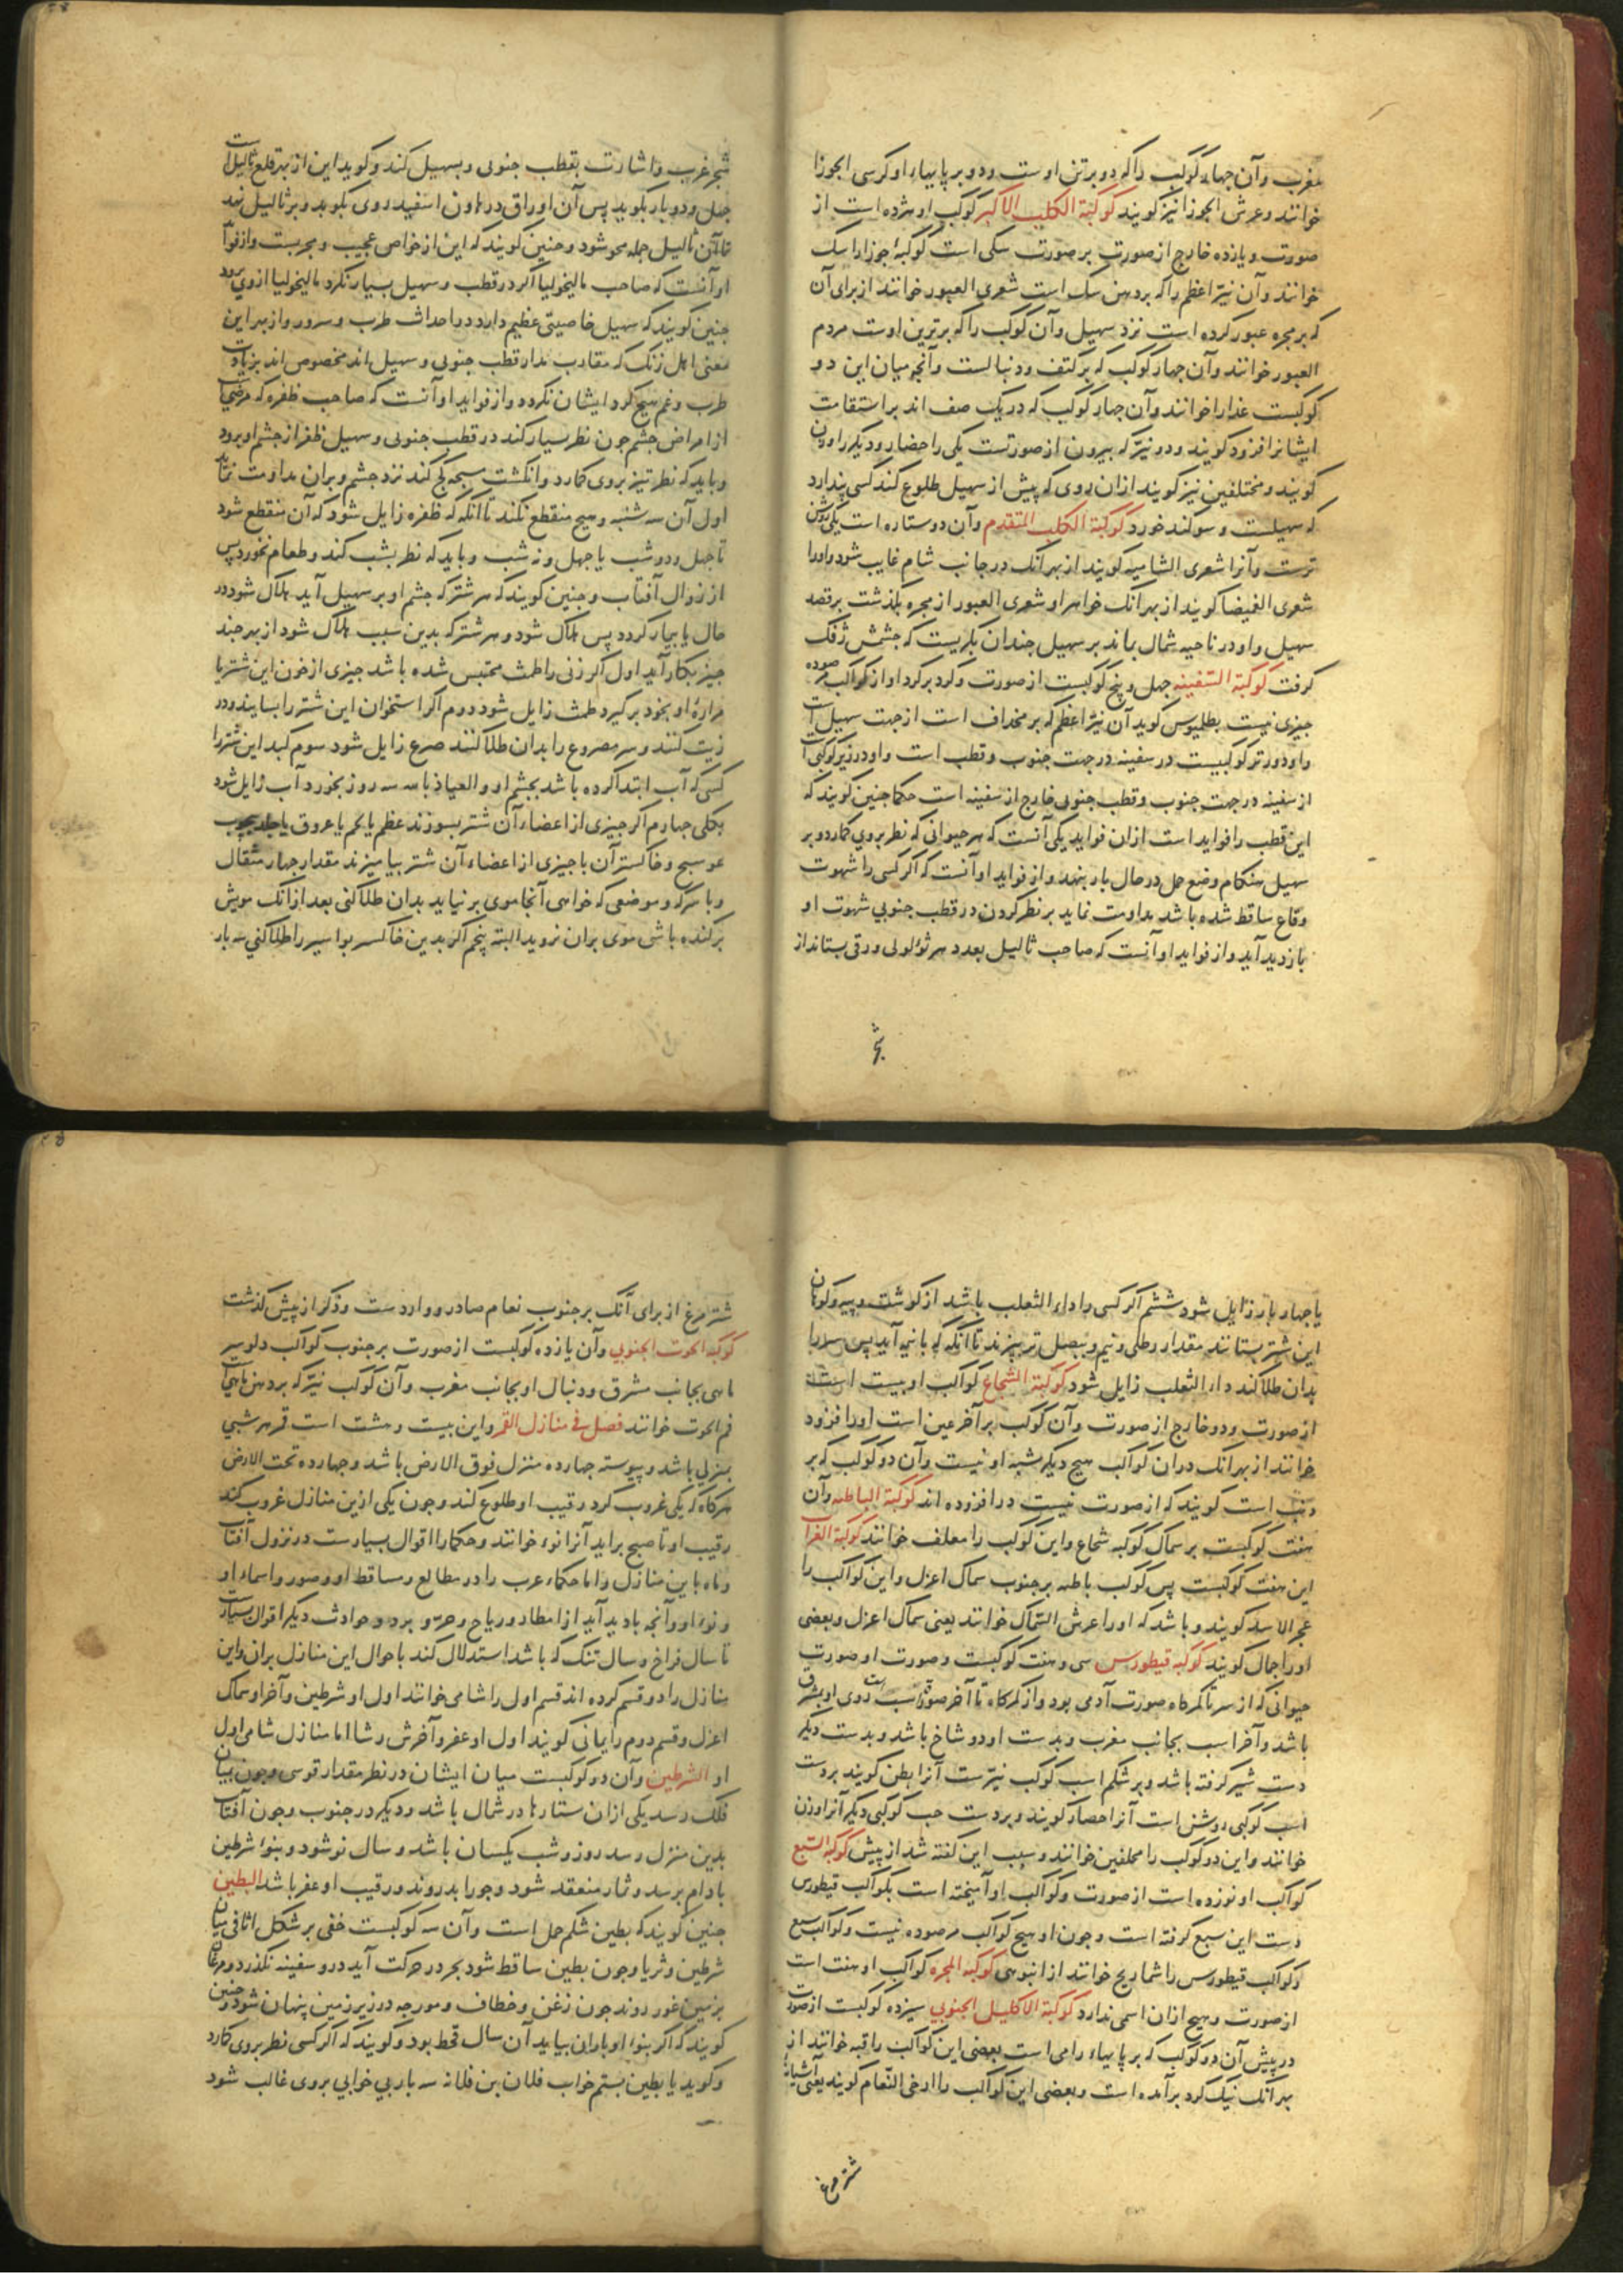 مغرب وآن چهار کوکب راکه دو برتن اوست ودو بر پایهاء او کرسی الجوزا
خوانند وعرش الجوزا نیز کویند کوکبة الکلب الاکبر کوکب او هژده است از
صورت ویازده خارج از صورت بر صورت سکی است کوکبۀ جوزا را سک
خوانند وآن نیّر اعظم راکه بردهن سک است شعری العبور خوانند از برای آن
که بر مجره عبور کرده است نزد سهیل وآن کوکب راکه برترین اوست مردم
العبور خوانند وآن چهار کوکب که بر کتف ودنبالست وآنچ میان این دو
کوکبست عذارا خوانند وآن چهار کوکب که در یک صف اند بر استقامت
ایشانرا فزود کویند ودو نیّر که بیرون از صورتست یکی را حضار ودیکر را وزن
کویند ومحتلفین نیز کویند ازان روی که پیش از سهیل طلوع کند کسی پندارد
که سهیلست وسوکند خورد کوکبة الکلب المتقدم وآن دو ستاره است یکی روشن
ترست وآنرا شعری الشامیه کویند از بهر آنک در جانب شام غایب شود واورا
شعری الغمیضا کویند از بهر آنک خواهر او شعری العبور از مجره بکذشت برقصد
سهیل واو در ناحیه شمال بماند بر سهیل چندان بکریست که چشمش ژفک
کرفت کوکبة السفینه چهل وپنج کوکبست از صورت وکرد بر کرد او از کواکب مرصوده
چیزی نیست بطلیوس کوید آن نیّر اعظم که بر مجداف است از جهت سهیل است
واو دورتر کوکبیست در سفینه در جهت جنوب وقطب است واو در زیر کوکبی است
از سفینه در جهت جنوب وقطب جنوبی خارج از سفینه است حکما چنین کویند که
این قطب را فواید است ازان فواید یکی آنست که هر حیوانی که نظر بروی کمارد وبر
سهیل هنکام وضع حمل در حال بار بنهد واز فواید او آنست که اکر کسی را شهوت
وقاع ساقط شده باشد مداومت نماید بر نظر کردن در قطب جنوبی شهوت او
بازدید آید واز فواید او آنست که صاحب ثالیل بعدد هر ثولولی ورقی بستاند از
شجر
شجر غرب واشارت بقطب جنوبی وبسهیل کند وکوید این از بهر قلع ثالیل است
چهل ودو بار بکوید پس آن اوراق در هاون اسفیدروی بکوبد وبر ثالیل نهد
تا آن ثالیل جمله محو شود وچنین کویند که این از خواص عجیب ومجربست واز فواید
او آنست که صاحب مالیخولیا اکر در قطب وسهیل بسیار نکرد مالیخولیا از وی برود
چنین کویند که سهیل خاصیتی عظیم دارد در احداث طرب وسرور واز بهر این
معنی اهل زنک که مقارب مدار قطب جنوبی وسهیل اند مخصوص اند بزیادت
طرب وغم هیچ کرد ایشان نکردد واز فواید او آنست که صاحب ظفره که مرضیست
از امراض چشم چون نظر بسیار کند در قطب جنوبی وسهیل ظفر از چشم او برود
وباید که نظر تیز بروی کمارد وانکشت سبحه کج کند نزد چشم وبران مداومت نماید
اول آن سه شنبه وهیچ منقطع نکند تا آنکه که ظفره زایل شود که آن منقطع شود
تا چهل ودو شب یا چهل ونه شب وباید که نظر بشب کند وطعام نخورد پس
از زوال آفتاب وچنین کویند که هر شتر که چشم او بر سهیل آید هلاک شود در
حال یا بیمار کردد پس هلاک شود وهر شتر که بدین سبب هلاک شود از بهر چند
چیز بکار آید اول اکر زنی را طمث محتبس شده باشد چیزی از خون این شتر یا
مرارۀ او بخود بر کیرد طمث زایل شود دوم اکر استخوان این شتر را بسایند ودر
زیت کنند وسر مصروع را بدان طلا کنند صرع زایل شود سوم کبد این شتر را
کسی که آب ابتدا کرده باشد بچشم او والعیاذ بالله سه روز بخورد آب زایل شود
بکلی چهارم اکر چیزی از اعضاء آن شتر بسوزند عظم یا لحم یا عروق یا جلد بچوب
عوسج وخاکستر آن با چیزی از اعضاء آن شتر بیامیزند مقدار چهار مثقال
وبا سرکه وموضعی که خواهی آنجا موی بر نیاید بدان طلا کنی بعد از آنک مویش
برکنده باشی موی بران نروید البته پنجم اکر بدین خاکستر بواسیر را طلا کنی سه بار
یا چهار بار زایل شود ششم اکر کسی را داء الثعلب باشد از کوشت وپیه وکوهان
این شتر بستانند مقدار رطلی ونیم وببصل تر بپزند تا آنکه که با نیمی آید پس سر را
بدان طلا کند داء الثعلب زایل شود کوکبة الشجاع کواکب او بیست است
از صورت ودو خارج از صورت وآن کوکب بر آخر عین است اورا فزود
خوانند از بهر آنک دران کواکب هیچ دیکر شبه او نیست وآن دو کوکب که بر
ذنب است کویند که از صورت نیست درافزوده اند کوکبة الباطیه وآن
هفت کوکبست بر سماک کوکبه شجاع واین کوکب را معلف خوانند کوکبة الغراب
این هفت کوکبست پس کوکب باطیه بر جنوب سماک اعزل واین کواکب را
عجز الاسد کویند وباشد که اورا عرش السماک خوانند یعنی سماک اعزل وبعضی
اورا جمال کویند کوکبة قیطورس سی وهفت کوکبست وصورت او صورت
حیوانی که از سر تا کمرکاه صورت آدمی بود واز کمرکاه تا آخر صورت اسبست روی او بمشرق
باشد وآخر اسب بجانب مغرب وبدست او دو شاخ باشد وبدست دیکر
دست شیر کرفته باشد وبر شکم اسب کوکب نیّرست آنرا بطن کویند بردست
اسب کوکبی روشن است آنرا حضار کویند وبردست چپ کوکبی دیکر آنرا وزن
خوانند واین دو کوکب را محلفین خوانند وسبب این کفته شد از پیش کوکبة السبع
کواکب او نوزده است از صورت وکواکب او آمیخته است بکواکب قیطورس
دست این سبع کرفته است وچون او هیچ کواکب مرصوده نیست وکواکب سبع
وکواکب قیطورس را شماریخ خوانند از انبوهی کوکبة المجره کواکب او هفت است
از صورت وهیچ ازان اسمی ندارد کوکبة الاکلیل الجنوبی سیزده کوکبست از صورت
در پیش آن دو کوکب که بر پایهاء رامی است بعضی این کواکب را قبه خوانند از
بهر آنک نیک کرد بر آمده است وبعضی این کواکب را ادحی النعام کویند یعنی آشیانۀ
شترمرغ
شترمرغ از برای آنک بر جنوب نعام صادر وواردست وذکر از پیش کذشت
کوکبة الحوت الجنوبی وآن یازده کوکبست از صورت بر جنوب کواکب دلو سر
ماهی بجانب مشرق ودنبال او بجانب مغرب وآن کوکب نیّر که بردهن ماهیست
فم الحوت خوانند فصل فی منازل القمر واین بیست وهشت است قمر هر شبی
بمنزلی باشد وپیوسته چهارده منزل فوق الارض باشد وچهارده تحت الارض
هرکاه که یکی غروب کرد رقیب او طلوع کند وچون یکی ازین منازل غروب کند
رقیب او تا صبح براید آنرا نوء خوانند وحکما را اقوال بسیارست در نزول آفتاب
وماه باین منازل واما حکماء عرب را در مطالع ومساقط او وصور واسماء او
ونوء او وآنچه بادید آید از امطار وریاح وحر وبرد وحوادث دیکر اقوال بسیارست
تا سال فراخ وسال تنک که باشد استدلال کند باحوال این منازل بران واین
منازل را دو قسم کرده اند قسم اول را شامی خوانند اول او شرطین وآخر او سماک
اعزل وقسم دوم را یمانی کویند اول او غفر وآخرش رشا اما منازل شامی اول
او الشرطین وآن دو کوکبست میان ایشان در نظر مقدار قوسی وچون بمیان
فلک رسد یکی ازان ستارها در شمال باشد ودیکر در جنوب وچون آفتاب
بدین منزل رسد روز وشب یکسان باشد وسال نو شود وبنوء شرطین
بادام برسد وثمار منعقد شود وجو را بدروند ورقیب او غفر باشد البطین
چنین کویند که بطین شکم حمل است وآن سه کوکبست خفی بر شکل اثافی میان
شرطین وثریا وچون بطین ساقط شود بحر در حرکت آید درو سفینه نکذرد ومرغان
بزمین غور روند چون زغن وخطاف ومورچه در زیر زمین پنهان شود وچنین
کویند که اکر بنوء او باران بیاید آن سال قحط بود وکویند که اکر کسی نظر بروی کمارد
وکوید یا بطین بستم خواب فلان بن فلانه سه بار بی خوابی بروی غالب شود